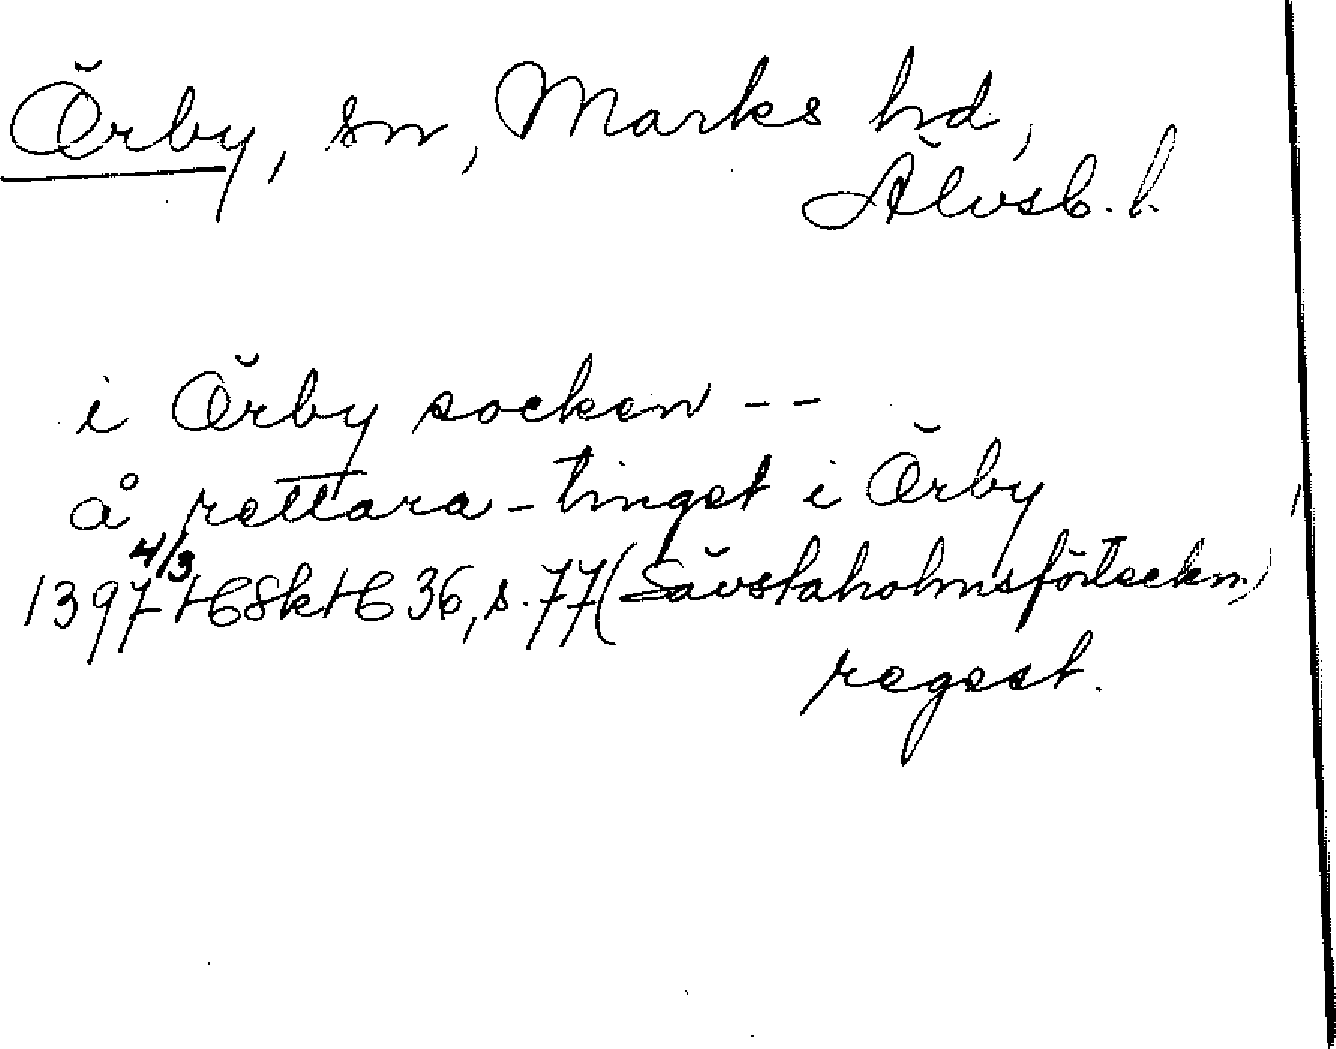 Örby, sn, Marks hd,
Älvsb. l.
i Örby socken --
å rettara-tinget i Örby
1397 4/3 HSkH 36, s. 77 (Sävstaholmsförteckn.)
regest.